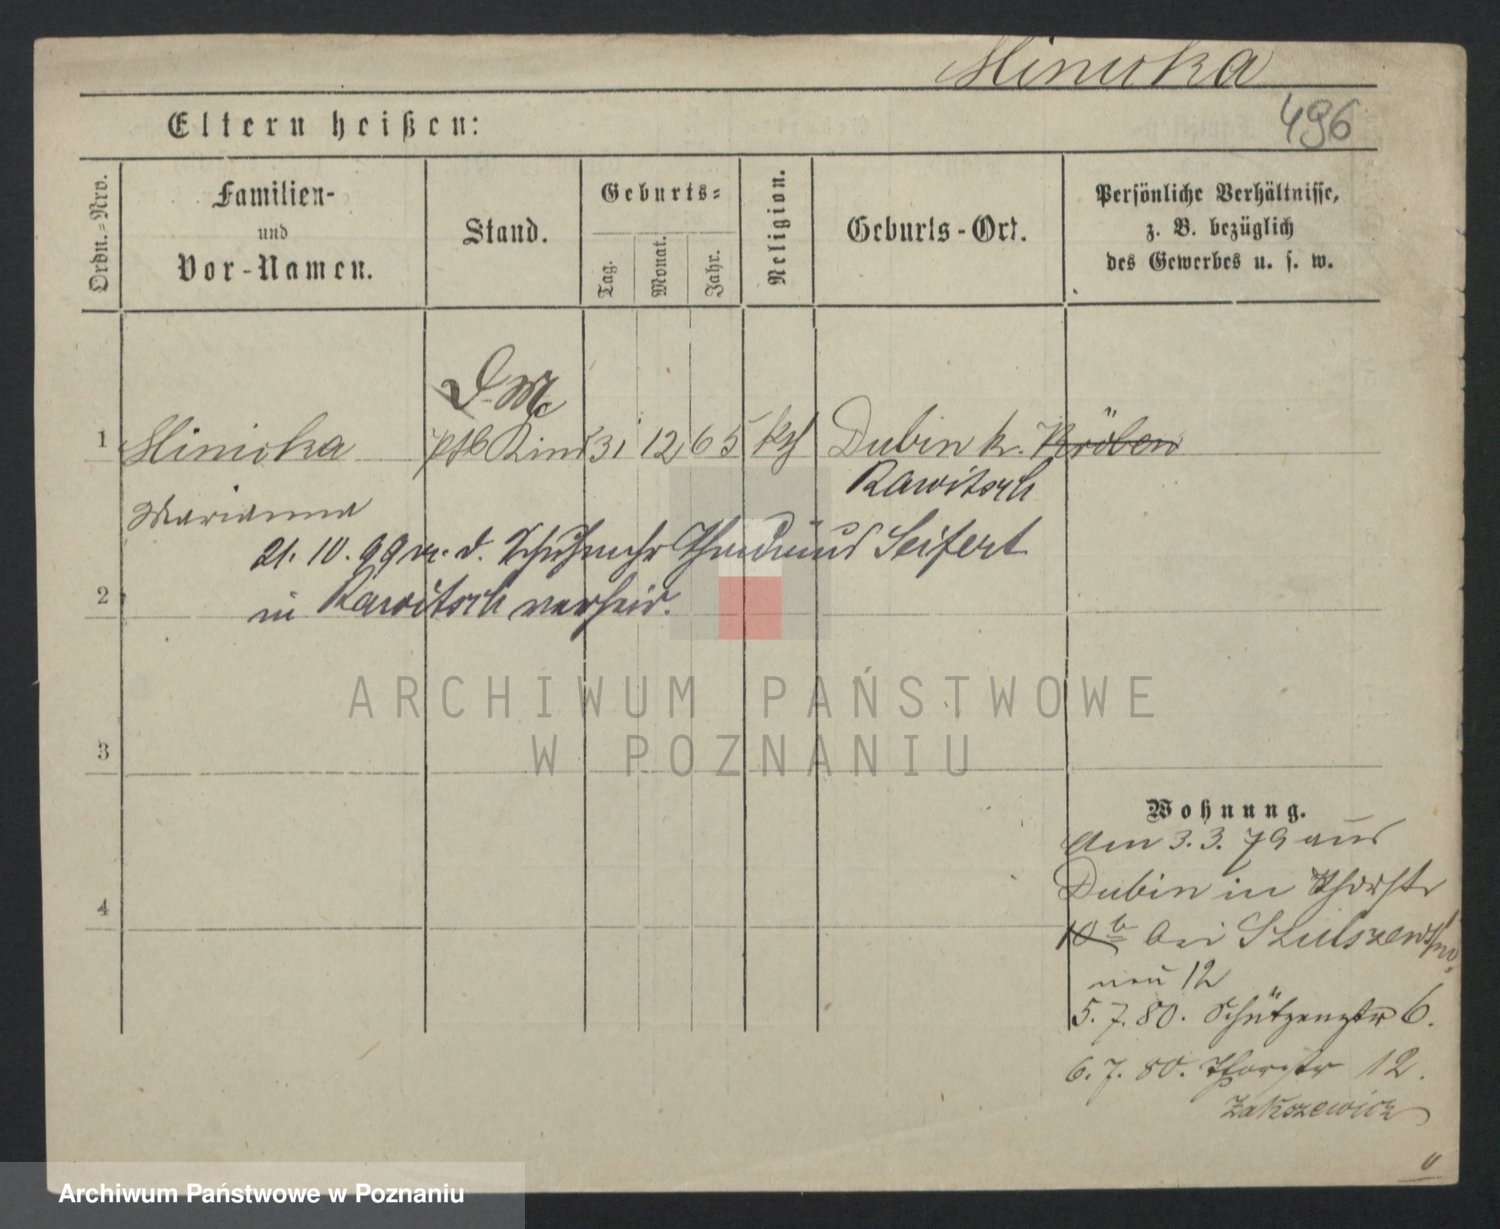 Minicka
Eltern heißen:
496
Ordn.-Nro.
Familien-
und
Vor-Namen.
Stand.
Geburts-
Tag.
Monat.
Jahr.
Religion.
Geburts-Ort.
Persönliche Verhältnisse,
z. B. bezüglich
des Gewerbes u. s. w.
D. M
1 Minicka Kind 31 12 65 kth Dubin Kr. Kröben
Rawitsch
Marianna
21. 10. 99 m. d. Seifert
2 in Rawitsch verheir.
ARCHIWUM PAŃSTWOWE
W POZNANIU
3
Wohnung.
Am 3. 3. 79 aus
Dubin in Thorstr
4
10 b bei
neu 12
5. 7. 80. Schützenstr 6.
6. 7. 80. Thorstr 12.
Zakszewicz
Archiwum Państwowe w Poznaniu